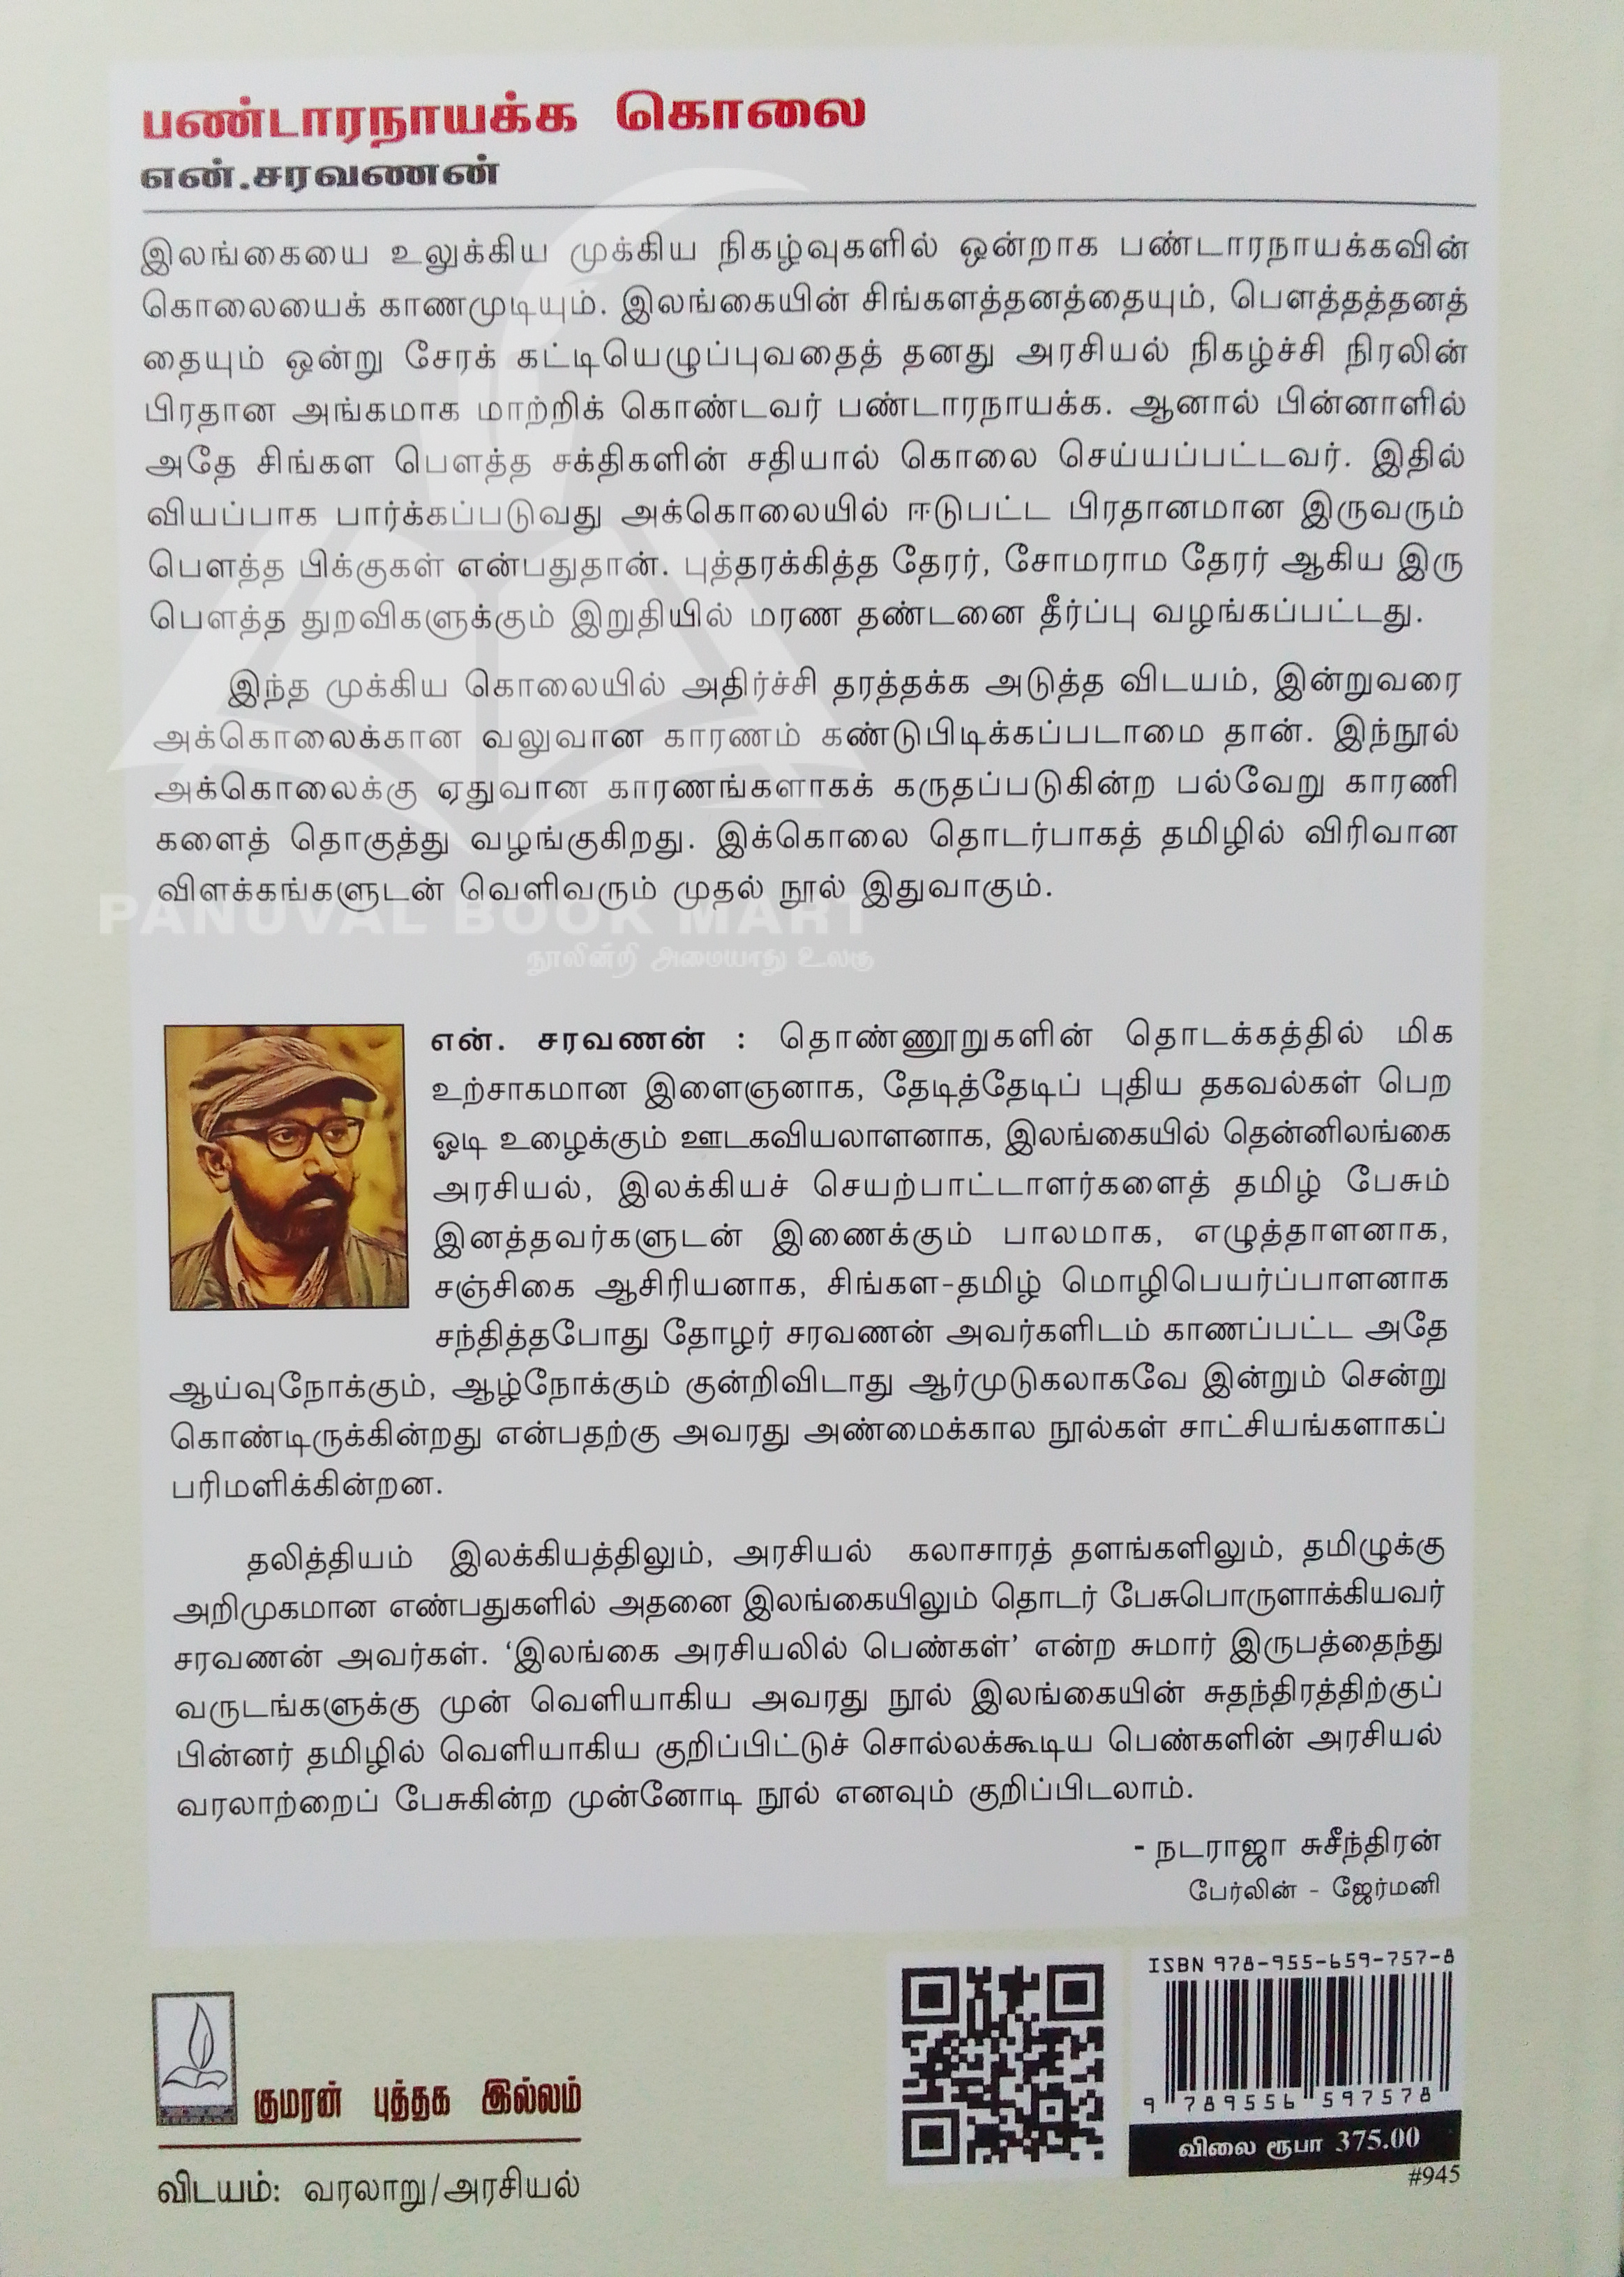 பண்டாரநாயக்க கொலை
என்.சரவணன்
இலங்கையை உலுக்கிய முக்கிய நிகழ்வுகளில் ஒன்றாக பண்டாரநாயக்கவின்
கொலையைக் காணமுடியும். இலங்கையின் சிங்களத்தனத்தையும், பௌத்தத்தனத்
தையும் ஒன்று சேரக் கட்டியெழுப்புவதைத் தனது அரசியல் நிகழ்ச்சி நிரலின்
பிரதான அங்கமாக மாற்றிக் கொண்டவர் பண்டாரநாயக்க. ஆனால் பின்னாளில்
அதே சிங்கள பௌத்த சக்திகளின் சதியால் கொலை செய்யப்பட்டவர். இதில்
வியப்பாக பார்க்கப்படுவது அக்கொலையில் ஈடுபட்ட பிரதானமான இருவரும்
பௌத்த பிக்குகள் என்பதுதான். புத்தரக்கித்த தேரர், சோமராம தேரர் ஆகிய இரு
பௌத்த துறவிகளுக்கும் இறுதியில் மரண தண்டனை தீர்ப்பு வழங்கப்பட்டது.
இந்த முக்கிய கொலையில் அதிர்ச்சி தரத்தக்க அடுத்த விடயம், இன்றுவரை
அக்கொலைக்கான வலுவான காரணம் கண்டுபிடிக்கப்படாமை தான். இந்நூல்
அக்கொலைக்கு ஏதுவான காரணங்களாகக் கருதப்படுகின்ற பல்வேறு காரணி
களைத் தொகுத்து வழங்குகிறது. இக்கொலை தொடர்பாகத் தமிழில் விரிவான
விளக்கங்களுடன் வெளிவரும் முதல் நூல் இதுவாகும்.
PANUVAL BOOK MART
நூலின்றி அமையாது உலகு
என். சரவணன் : தொண்ணூறுகளின் தொடக்கத்தில் மிக
உற்சாகமான இளைஞனாக, தேடித்தேடிப் புதிய தகவல்கள் பெற
ஓடி உழைக்கும் ஊடகவியலாளனாக, இலங்கையில் தென்னிலங்கை
அரசியல், இலக்கியச் செயற்பாட்டாளர்களைத் தமிழ் பேசும்
இனத்தவர்களுடன் இணைக்கும் பாலமாக, எழுத்தாளனாக,
சஞ்சிகை ஆசிரியனாக, சிங்கள-தமிழ் மொழிபெயர்ப்பாளனாக
சந்தித்தபோது தோழர் சரவணன் அவர்களிடம் காணப்பட்ட அதே
ஆய்வுநோக்கும், ஆழ்நோக்கும் குன்றிவிடாது ஆர்முடுகலாகவே இன்றும் சென்று
கொண்டிருக்கின்றது என்பதற்கு அவரது அண்மைக்கால நூல்கள் சாட்சியங்களாகப்
பரிமளிக்கின்றன.
தலித்தியம் இலக்கியத்திலும், அரசியல் கலாசாரத் தளங்களிலும், தமிழுக்கு
அறிமுகமான எண்பதுகளில் அதனை இலங்கையிலும் தொடர் பேசுபொருளாக்கியவர்
சரவணன் அவர்கள். ‘இலங்கை அரசியலில் பெண்கள்’ என்ற சுமார் இருபத்தைந்து
வருடங்களுக்கு முன் வெளியாகிய அவரது நூல் இலங்கையின் சுதந்திரத்திற்குப்
பின்னர் தமிழில் வெளியாகிய குறிப்பிட்டுச் சொல்லக்கூடிய பெண்களின் அரசியல்
வரலாற்றைப் பேசுகின்ற முன்னோடி நூல் எனவும் குறிப்பிடலாம்.
- நடராஜா சுசீந்திரன்
பேர்லின் - ஜேர்மனி
ISBN 978-955-659-757-8
9 789556 597578
விலை ரூபா 375.00
#945
குமரன் புத்தக இல்லம்
விடயம்: வரலாறு/அரசியல்